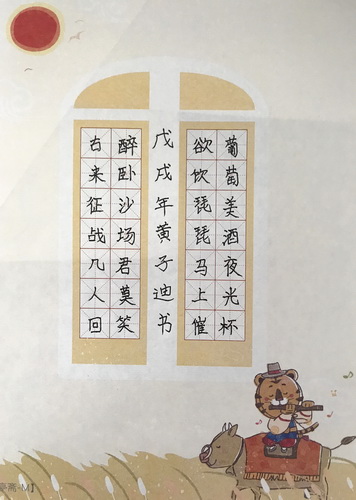 葡萄美酒夜光杯
欲饮琵琶马上催
戊戌年黄子迪书
醉卧沙场君莫笑
古来征战几人回